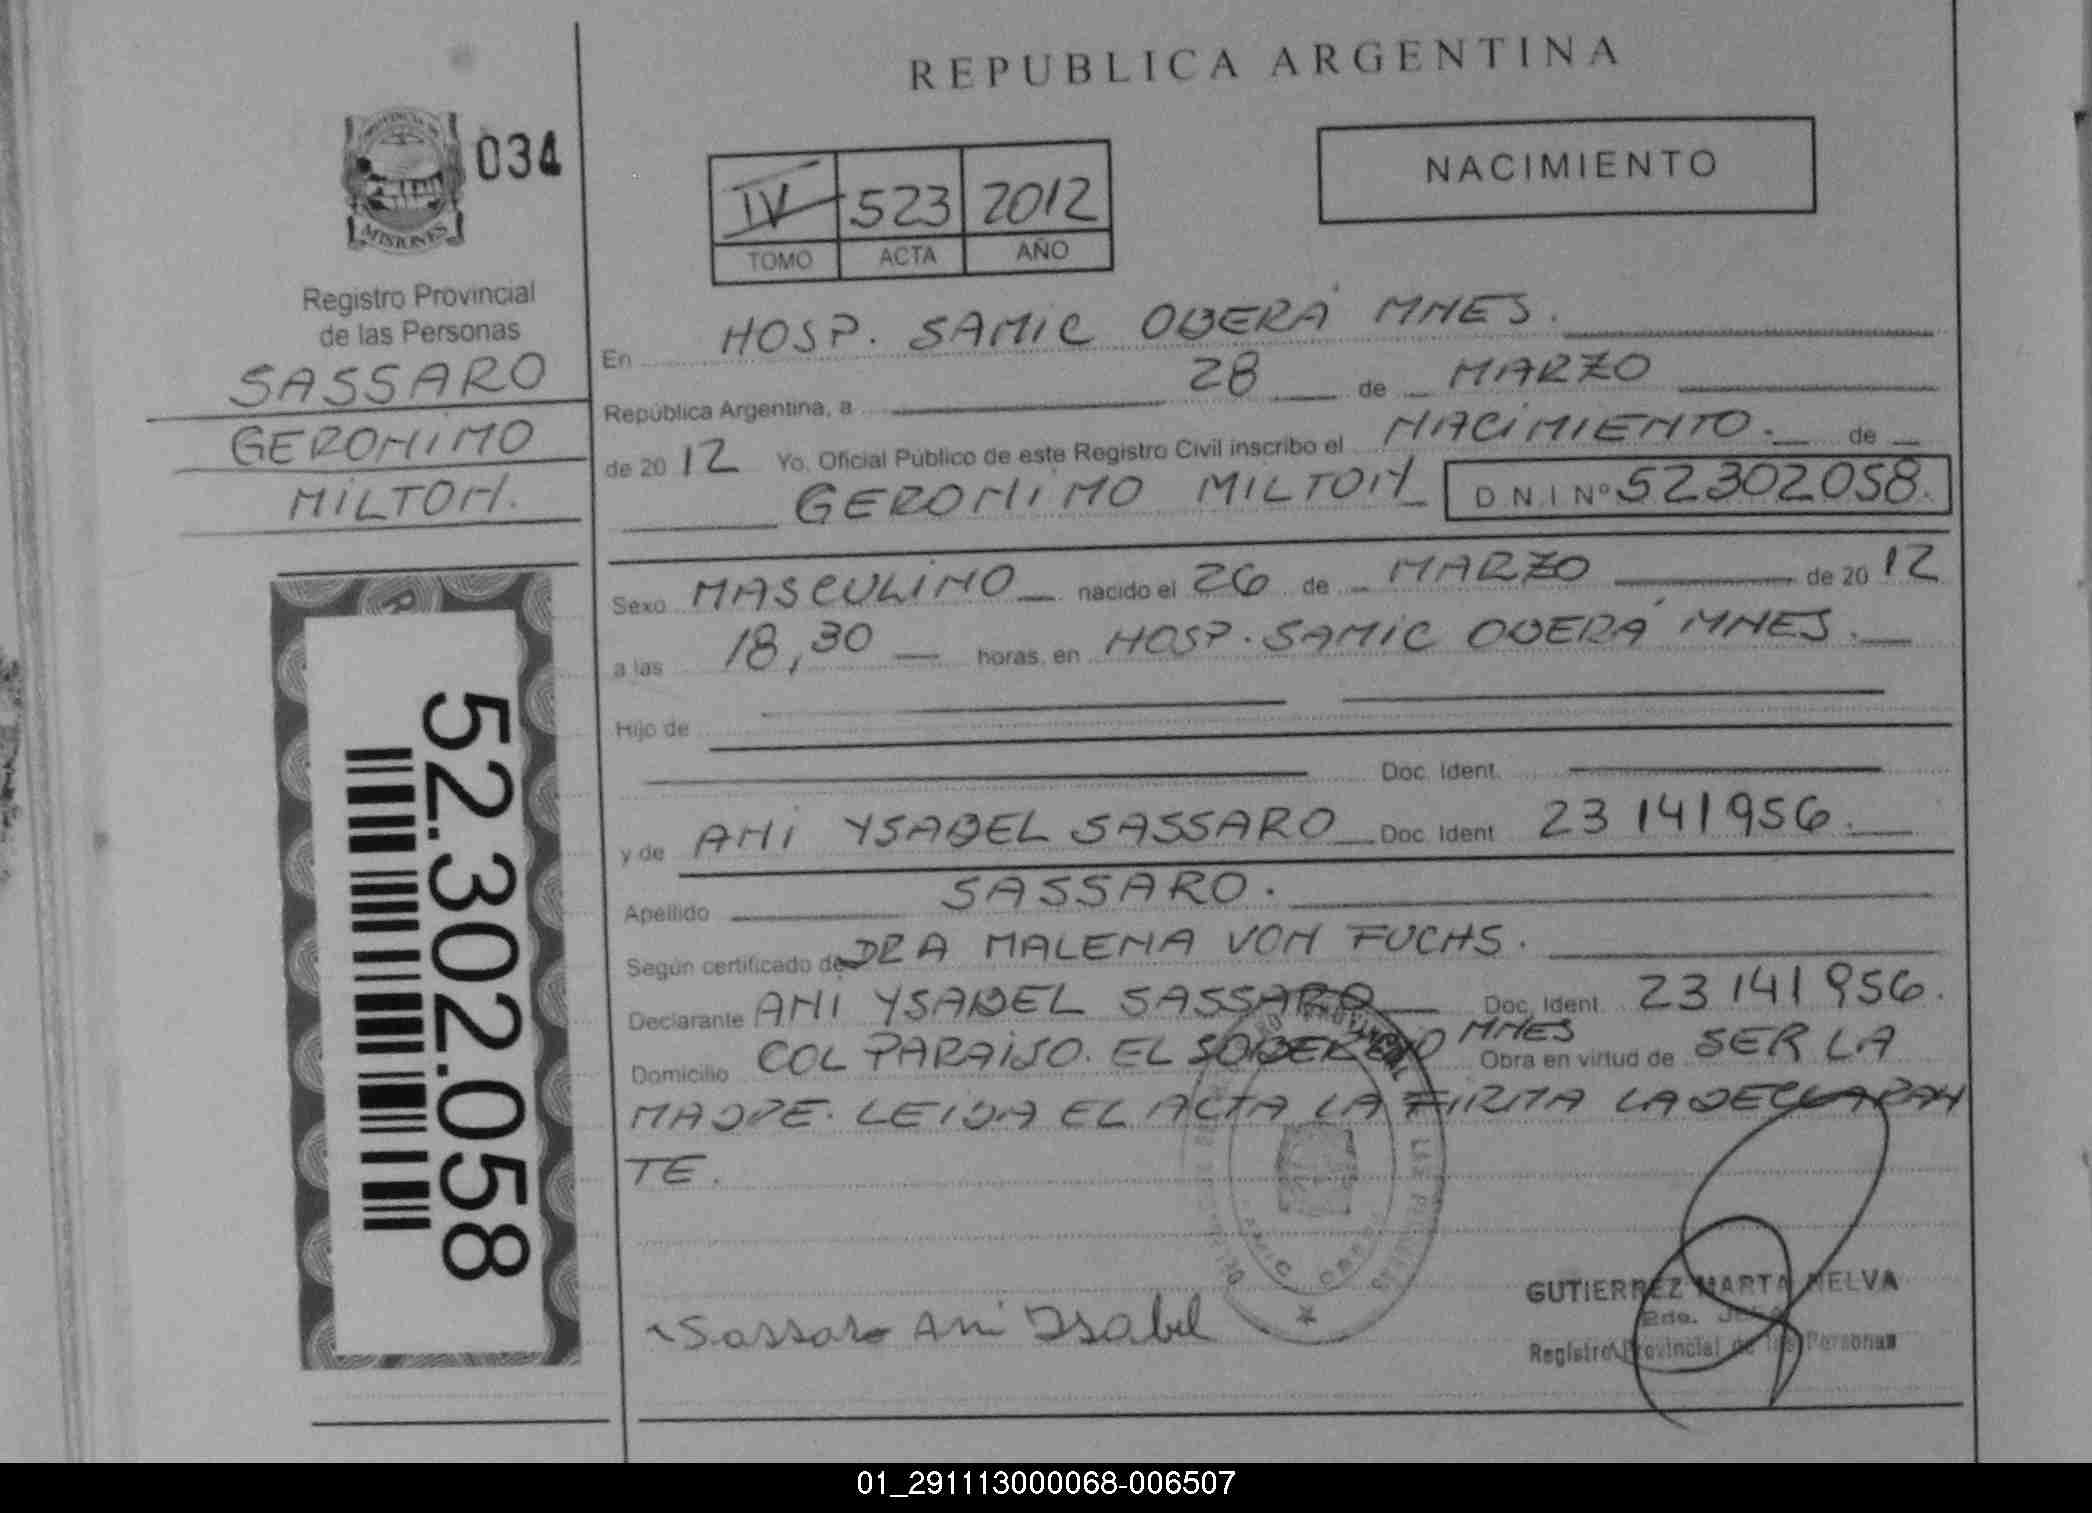 REPUBLICA ARGENTINA
PROVINCIA DE
MISIONES
034
Registro Provincial
de las Personas
SASSARO
GERONIMO
MILTON.
52.302.058
IV 523 2012
TOMO ACTA AÑO
NACIMIENTO
En HOSP. SAMIC OBERÁ MNES.
República Argentina, a 28 de MARZO
de 2012 Yo, Oficial Público de este Registro Civil inscribo el NACIMIENTO. de
GERONIMO MILTON D N I Nº 52302058.
Sexo MASCULINO nacido el 26 de MARZO de 2012
a las 18,30 horas, en HOSP. SAMIC OBERÁ MNES.
Hijo de
Doc. Ident.
y de ANI YSABEL SASSARO Doc. Ident. 23 141 956.
Apellido SASSARO.
Según certificado de DRA MALENA VON FUCHS.
Declarante ANI YSABEL SASSARO Doc. Ident. 23 141 956.
Domicilio COL PARAISO. EL SOBERBIO MNES Obra en virtud de SER LA
MADRE. LEIDA EL ACTA LA FIRMA LA DECLARAN
TE.
Sassaro Ani Isabel
GUTIERREZ MARTA NELVA
Registro Provincial de las Personas
01_291113000068-006507